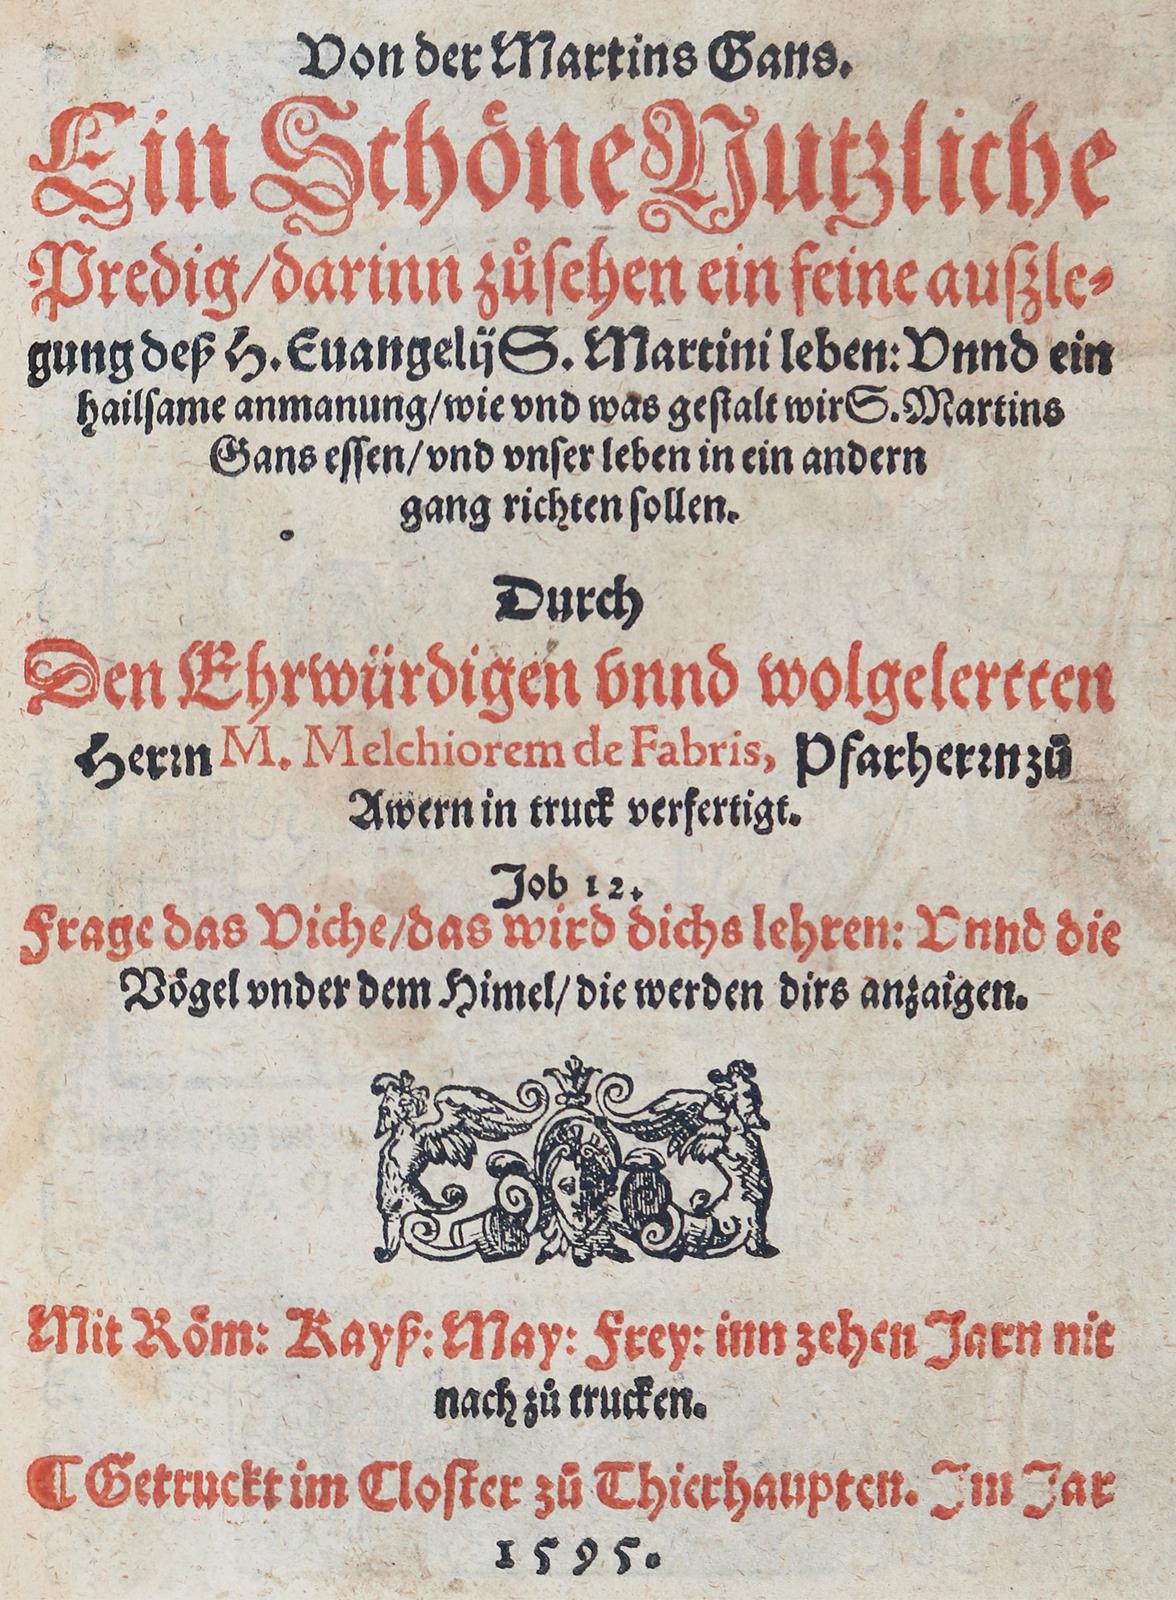 Von der Martins Gans.
Ein Schöne Nutzliche
Predig/darinn zůsehen ein feine auszle⸗
gung deß H. Euangelij S. Martini leben: Vnnd ein
hailsame anmanung/wie vnd was gestalt wir S. Martins
Gans essen/vnd vnser leben in ein andern
gang richten sollen.
Durch
Den Ehrwürdigen vnnd wolgelertten
Herꝛn M. Melchiorem de Fabris, Pfarherꝛn zů
Awern in truck verfertigt.
Job 12.
Frage das Viche/das wird dichs lehren: Vnnd die
Vögel vnder dem Himel/die werden dirs anzaigen.
Mit Röm: Kayß: May: Frey: inn zehen Jarn nit
nach zů trucken.
¶ Getruckt im Closter zů Thierhaupten. Im Jar
1595.